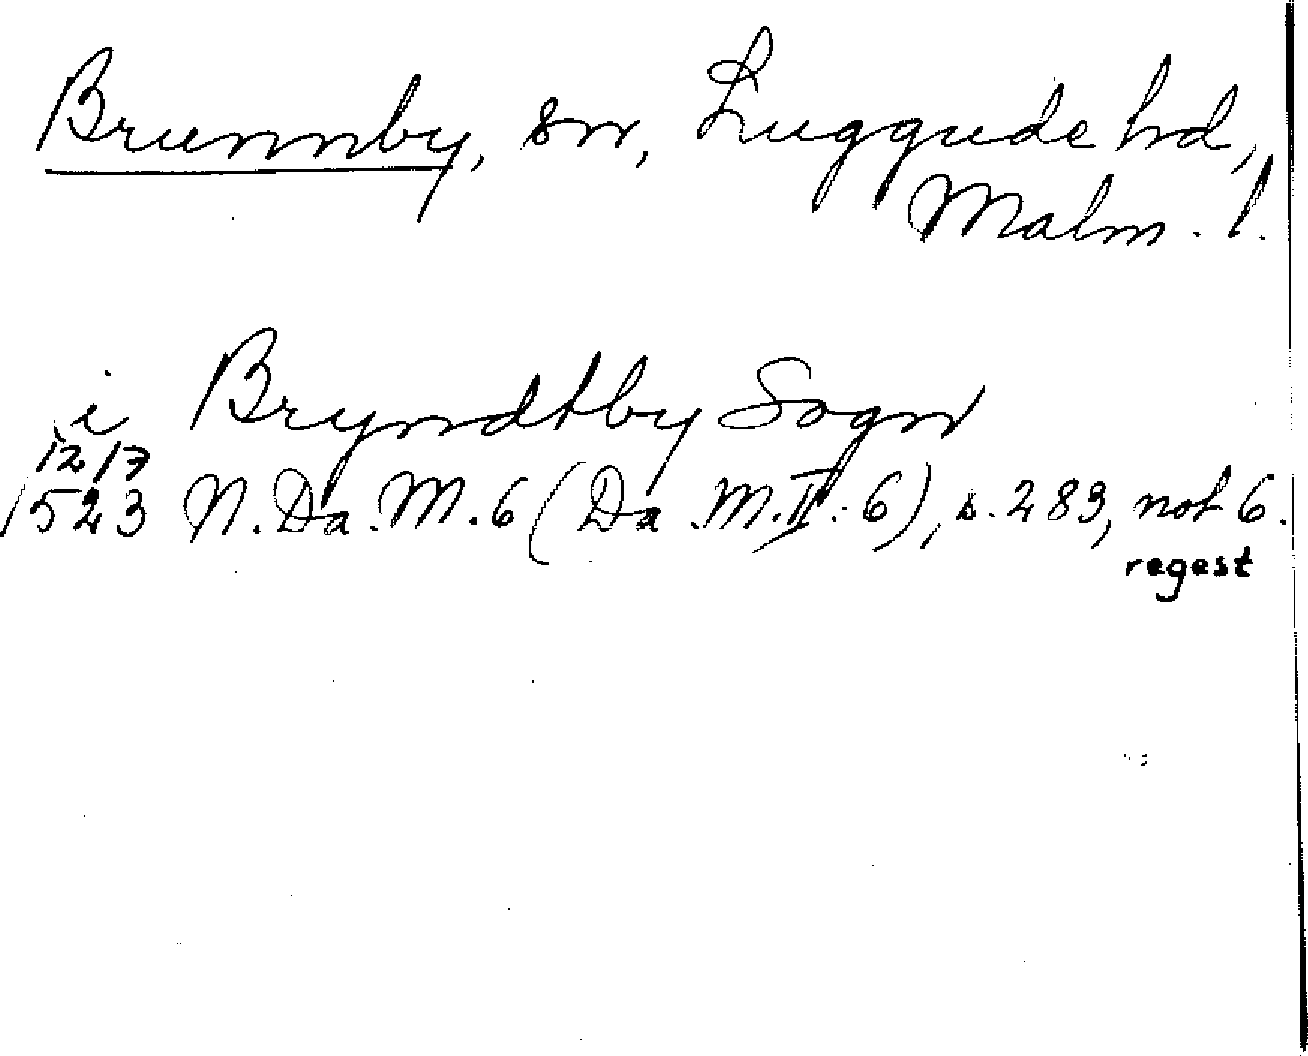 Brunnby, sn, Luggude hd,
Malm. l.
i Bryndtby Sogn
12/7
1523 N. Da. M. 6 (Da. M. II. 6), s. 283, not 6.
regest